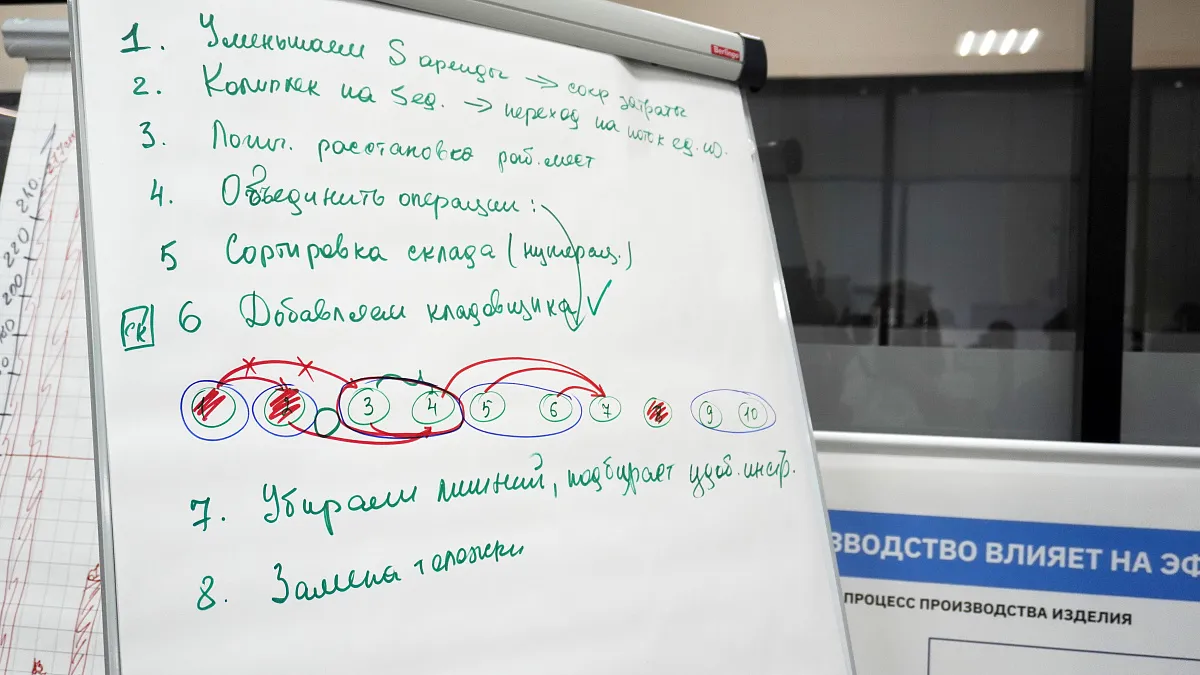 Berlingo
1. Уменьшаем S аренды → сокр затраты
2. Комплек на 5 ед. → переход на поток ед. из.
3. Логич. расстановка раб. мест
4. Объединить операции:
5 Сортировка склада (нумерац.)
СК 6 Добавляем кладовщика ✓
1 2 3 4 5 6 7 8 9 10
7. Убираем лишний, подбирает удоб. инстр.
8. Замена тележки
240
220
200
ЗВОДСТВО ВЛИЯЕТ НА ЭФ
ПРОЦЕСС ПРОИЗВОДСТВА ИЗДЕЛИЯ